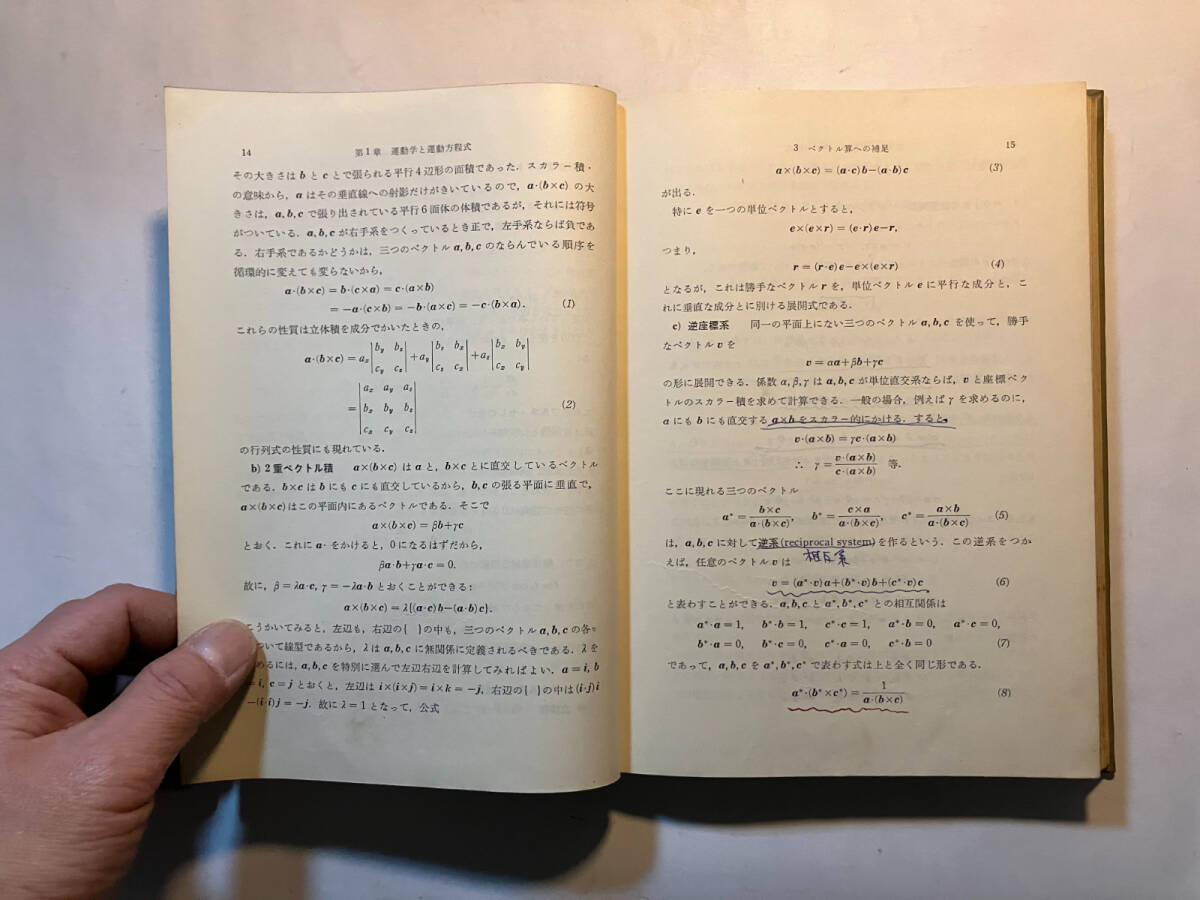 14 第1章 運動学と運動方程式
その大きさは b と c とで張られる平行4辺形の面積であった．スカラー積・
の意味から，a はその垂直線への射影だけがきいているので，a·(b×c) の大
きさは，a, b, c で張り出されている平行6面体の体積であるが，それには符号
がついている．a, b, c が右手系をつくっているとき正で，左手系ならば負であ
る．右手系であるかどうかは，三つのベクトル a, b, c のならんでいる順序を
循環的に変えても変らないから，
a·(b×c) = b·(c×a) = c·(a×b)
= −a·(c×b) = −b·(a×c) = −c·(b×a). (1)
これらの性質は立体積を成分でかいたときの，
a·(b×c) = a_x |b_y b_z; c_y c_z| + a_y |b_z b_x; c_z c_x| + a_z |b_x b_y; c_x c_y|
= |a_x a_y a_z; b_x b_y b_z; c_x c_y c_z| (2)
の行列式の性質にも現れている．
b) 2重ベクトル積 a×(b×c) は a と，b×c とに直交しているベクトル
である．b×c は b にも c にも直交しているから，b, c の張る平面に垂直で，
a×(b×c) はこの平面内にあるベクトルである．そこで
a×(b×c) = βb+γc
とおく．これに a· をかけると，0になるはずだから，
βa·b+γa·c = 0.
故に，β = λa·c, γ = −λa·b とおくことができる：
a×(b×c) = λ{(a·c)b−(a·b)c}.
こうかいてみると，左辺も，右辺の{ }の中も，三つのベクトル a, b, c の各々
ついて線型であるから，λ は a, b, c に無関係に定義されるべきである．λ を
めるには，a, b, c を特別に選んで左辺右辺を計算してみればよい．a = i, b
= i, c = j とおくと，左辺は i×(i×j) = i×k = −j，右辺の{ }の中は (i·j)i
−(i·i)j = −j．故に λ = 1 となって，公式
3 ベクトル算への補足 15
a×(b×c) = (a·c)b−(a·b)c (3)
が出る．
特に e を一つの単位ベクトルとすると，
e×(e×r) = (e·r)e−r,
つまり，
r = (r·e)e−e×(e×r) (4)
となるが，これは勝手なベクトル r を，単位ベクトル e に平行な成分と，こ
れに垂直な成分とに別ける展開式である．
c) 逆座標系 同一の平面上にない三つのベクトル a, b, c を使って，勝手
なベクトル v を
v = αa+βb+γc
の形に展開できる．係数 α, β, γ は a, b, c が単位直交系ならば，v と座標ベク
トルのスカラー積を求めて計算できる．一般の場合，例えば γ を求めるのに，
a にも b にも直交する a×b をスカラー的にかける．すると，
v·(a×b) = γc·(a×b)
∴ γ = v·(a×b)/c·(a×b) 等．
ここに現れる三つのベクトル
a* = b×c/a·(b×c), b* = c×a/a·(b×c), c* = a×b/a·(b×c) (5)
は，a, b, c に対して逆系(reciprocal system)を作るという．この逆系をつか
相互系
えば，任意のベクトル v は
v = (a*·v)a+(b*·v)b+(c*·v)c (6)
と表わすことができる．a, b, c と a*, b*, c* との相互関係は
a*·a = 1, b*·b = 1, c*·c = 1, a*·b = 0, a*·c = 0,
b*·a = 0, b*·c = 0, c*·a = 0, c*·b = 0 (7)
であって，a, b, c を a*, b*, c* で表わす式は上と全く同じ形である．
a*·(b*×c*) = 1/a·(b×c) (8)